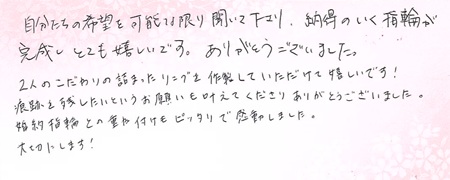 自分たちの希望を可能な限り聞いて下さり、納得のいく指輪が
完成しとても嬉しいです。ありがとうございました。
2人のこだわりの詰まったリングを作製していただけて嬉しいです!
痕跡を残したいというお願いも叶えてくださりありがとうございました。
婚約指輪との重ね付けもピッタリで感動しました。
大切にします!